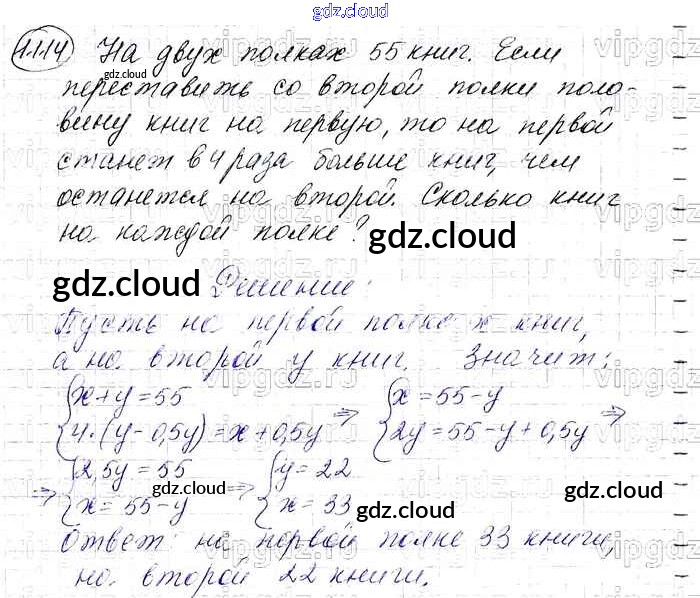 gdz.cloud
11.14 На двух полках 55 книг. Если
gdz.cloud
переставить со второй полки поло-
вину книг на первую, то на первой
станет в 4 раза больше книг, чем
останется на второй. Сколько книг
на каждой полке?
gdz.cloud
gdz.cloud
Решение:
Пусть на первой полке x книг,
а на второй y книг. Значит:
{x+y=55 => {x=55-y
{4·(y-0,5y)=x+0,5y {2y=55-y+0,5y =>
{2,5y=55 {y=22
=> {x=55-y => {x=33
gdz.cloud gdz.cloud gdz.cloud
Ответ: на первой полке 33 книги,
на второй 22 книги.